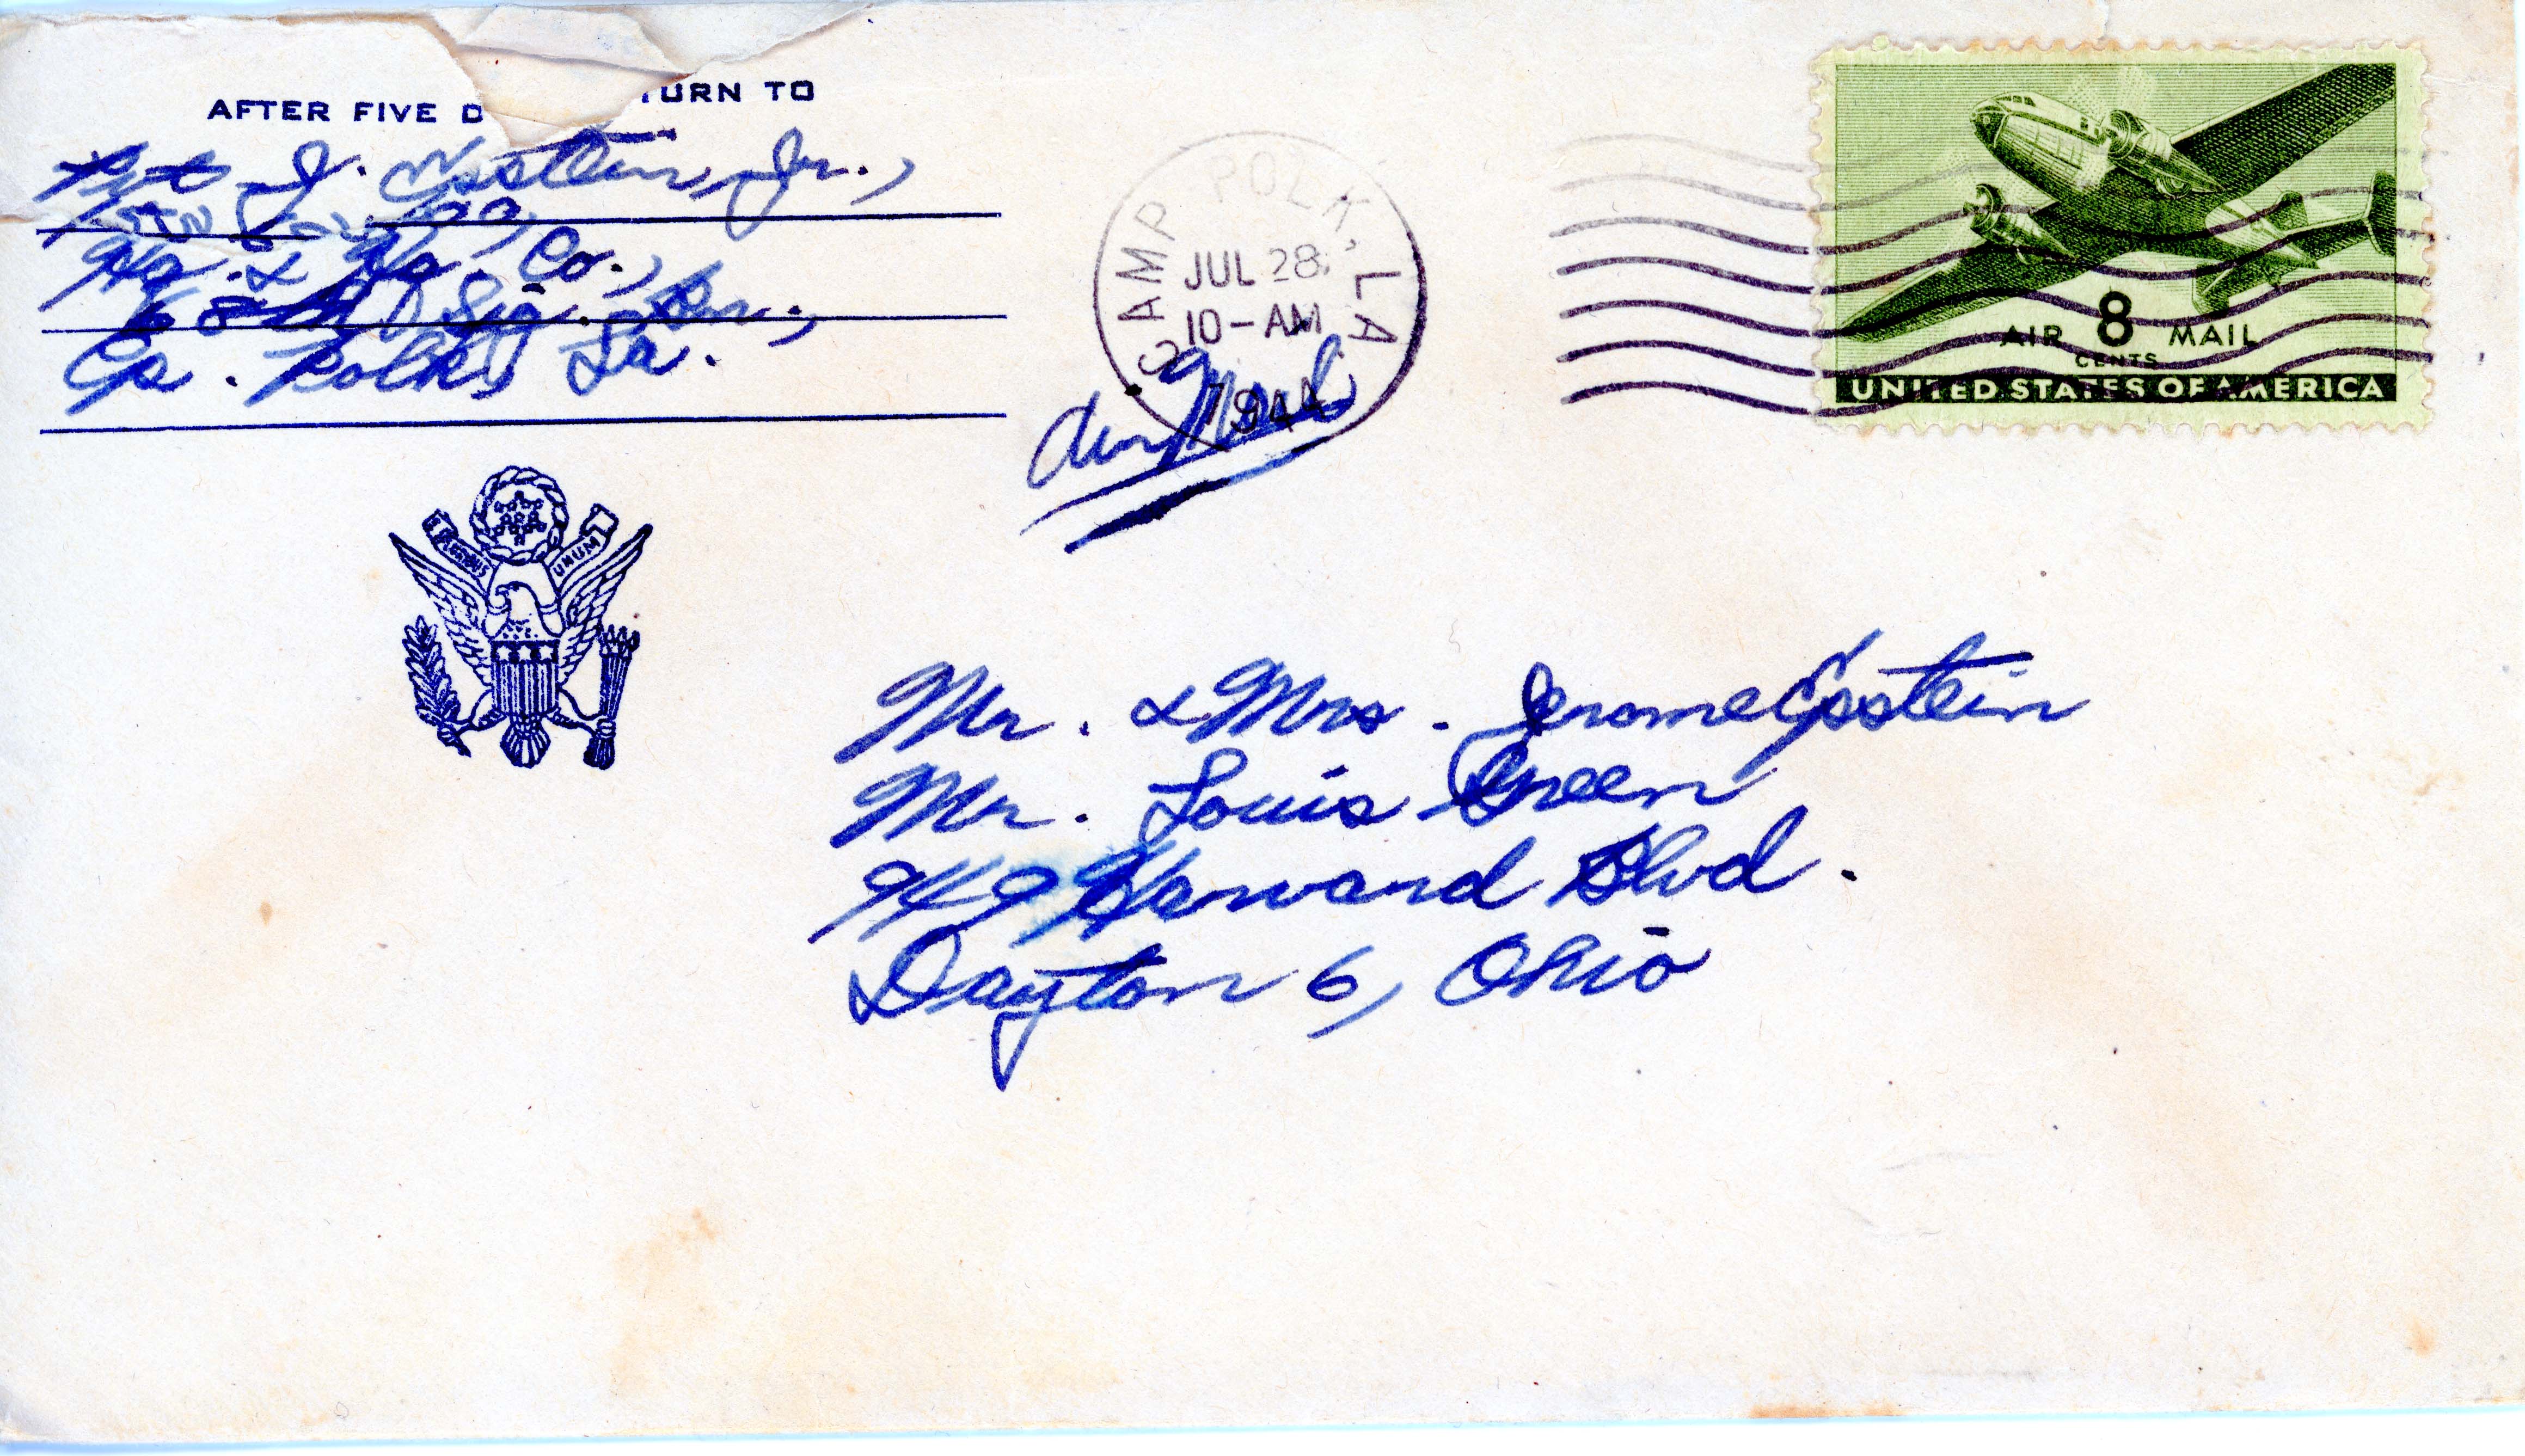 AFTER FIVE D TURN TO
Pvt J. Epstein, Jr.,
Hq. & Hq. Co.,
Sig. Bn.,
Cp. Polk, La.
CAMP POLK, LA.
JUL 28
10-AM
1944
Air Mail
AIR 8 MAIL
CENTS
UNITED STATES OF AMERICA
PLURIBUS UNUM
Mr. & Mrs. Jerome Epstein
Mr. Louis Green
Harvard Blvd.
Dayton 6, Ohio